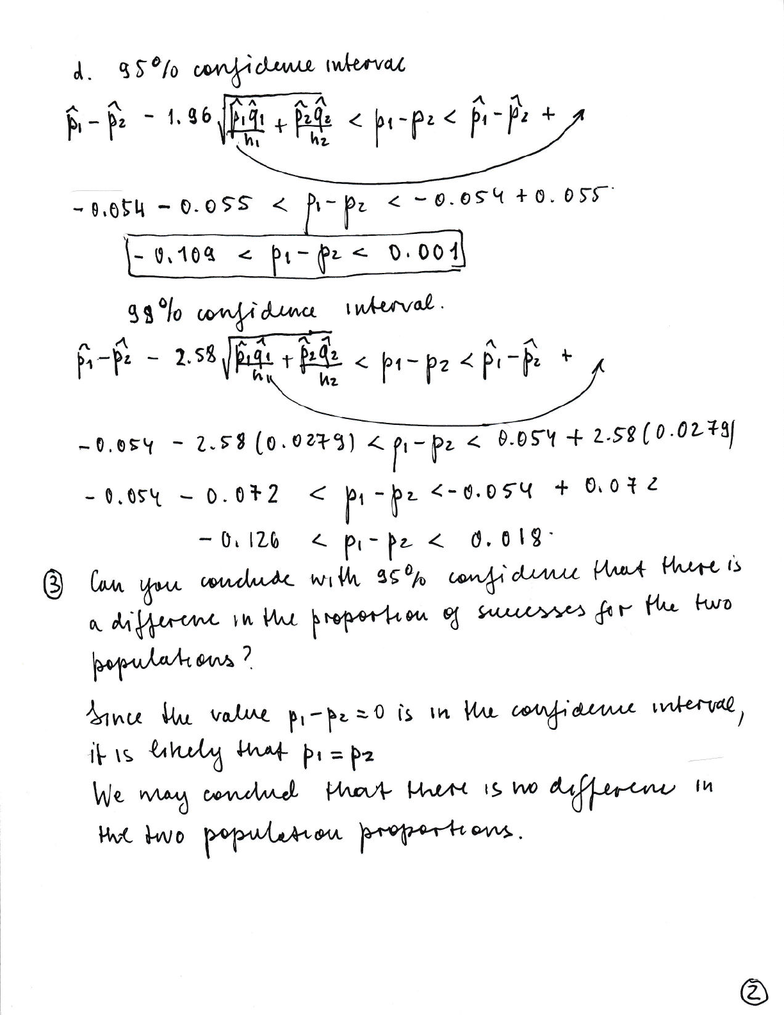 d. 95% confidence interval
p̂1 - p̂2 - 1.96 √(p̂1q̂1/n1 + p̂2q̂2/n2) < p1-p2 < p̂1-p̂2 +
-0.054 - 0.055 < p1-p2 < -0.054 + 0.055
-0.109 < p1-p2 < 0.001
99% confidence interval.
p̂1-p̂2 - 2.58 √(p̂1q̂1/n1 + p̂2q̂2/n2) < p1-p2 < p̂1-p̂2 +
-0.054 - 2.58(0.0279) < p1-p2 < 0.054 + 2.58(0.0279)
-0.054 - 0.072 < p1-p2 < -0.054 + 0.072
-0.126 < p1-p2 < 0.018.
③ Can you conclude with 95% confidence that there is
a difference in the proportion of successes for the two
populations?
Since the value p1-p2=0 is in the confidence interval,
it is likely that p1=p2
We may conclud that there is no difference in
the two population proportions.
②